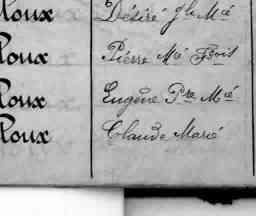 Roux Désiré Jh Mié
Roux Pierre Mié Fçois
Roux Eugène Pre Mié
Roux Claude Marie